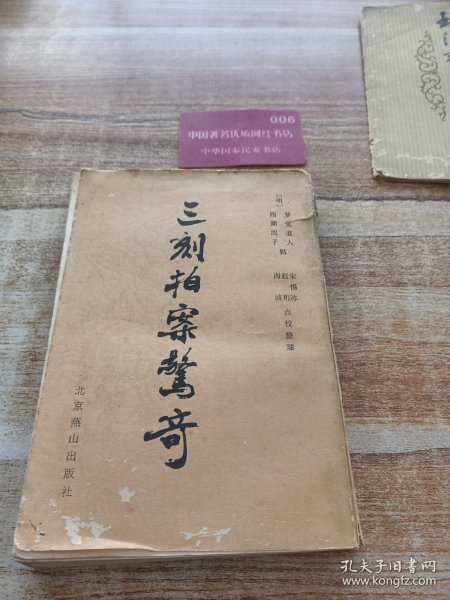 006
中国著名优质网红书店
中华国泰民安书店
三刻拍案驚奇
(明)
梦觉道人
西湖浪子
辑
宋
赵
海波
点校整理
北京燕山出版社
孔夫子旧书网
www.kongfz.com